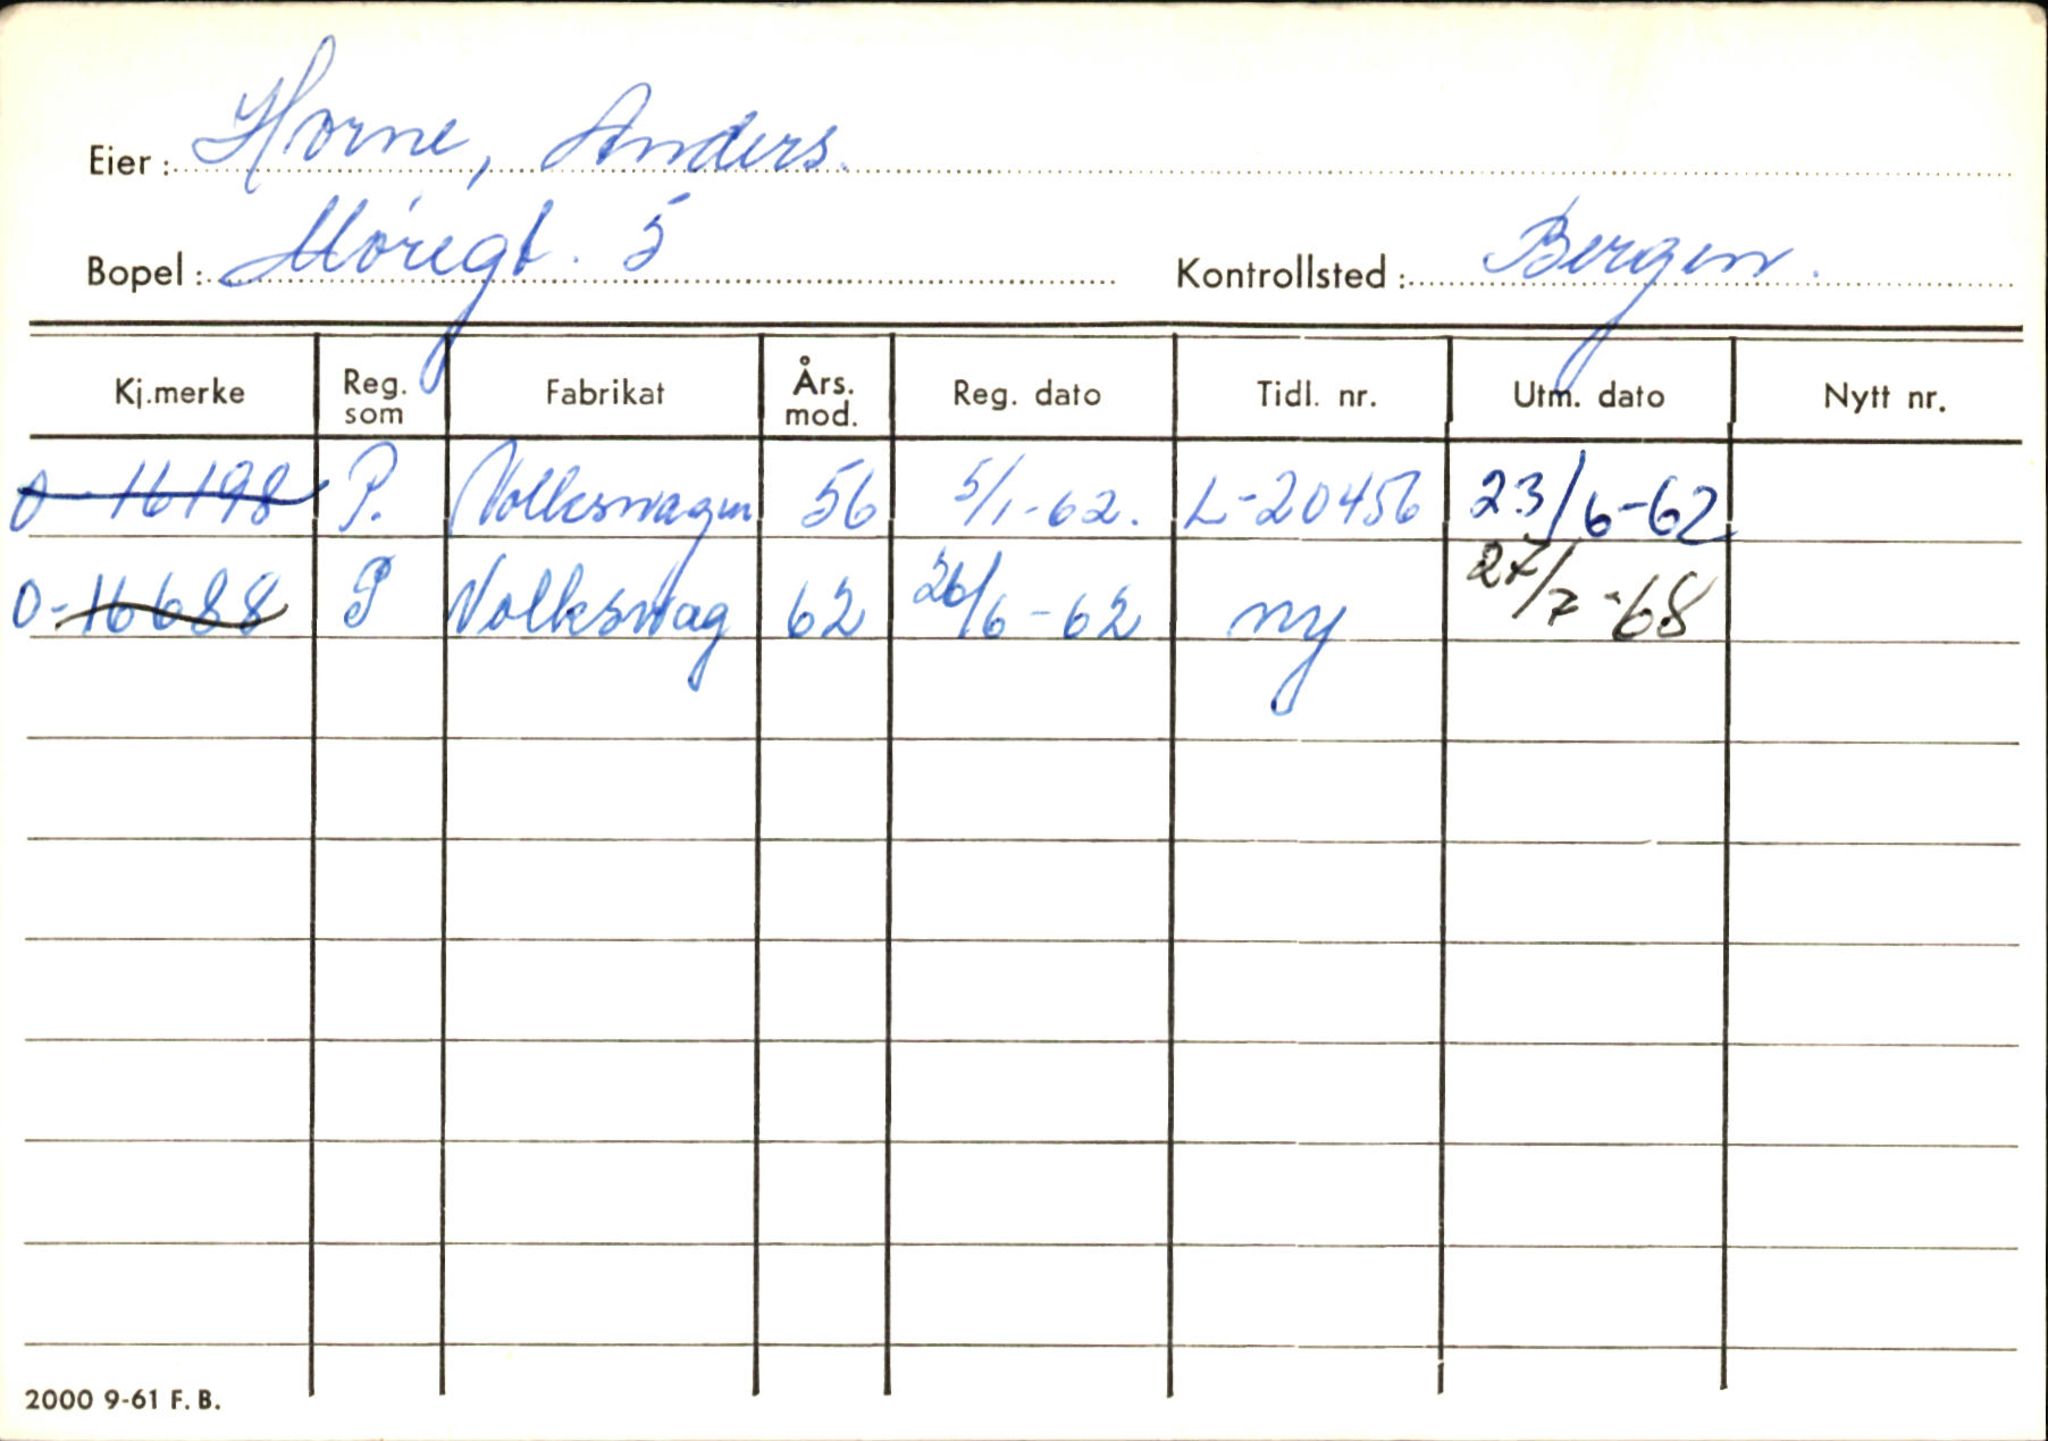 Eier: Horne, Anders.
Bopel: Møregt. 5 Kontrollsted: Bergen.
Kj.merke Reg. som Fabrikat Års. mod. Reg. dato Tidl. nr. Utm. dato Nytt nr.
O-16198 P. Volkswagen 56 5/1-62. L-20456 23/6-62
O-16688 P Volkswag 62 26/6-62 ny 27/7-68
2000 9-61 F. B.